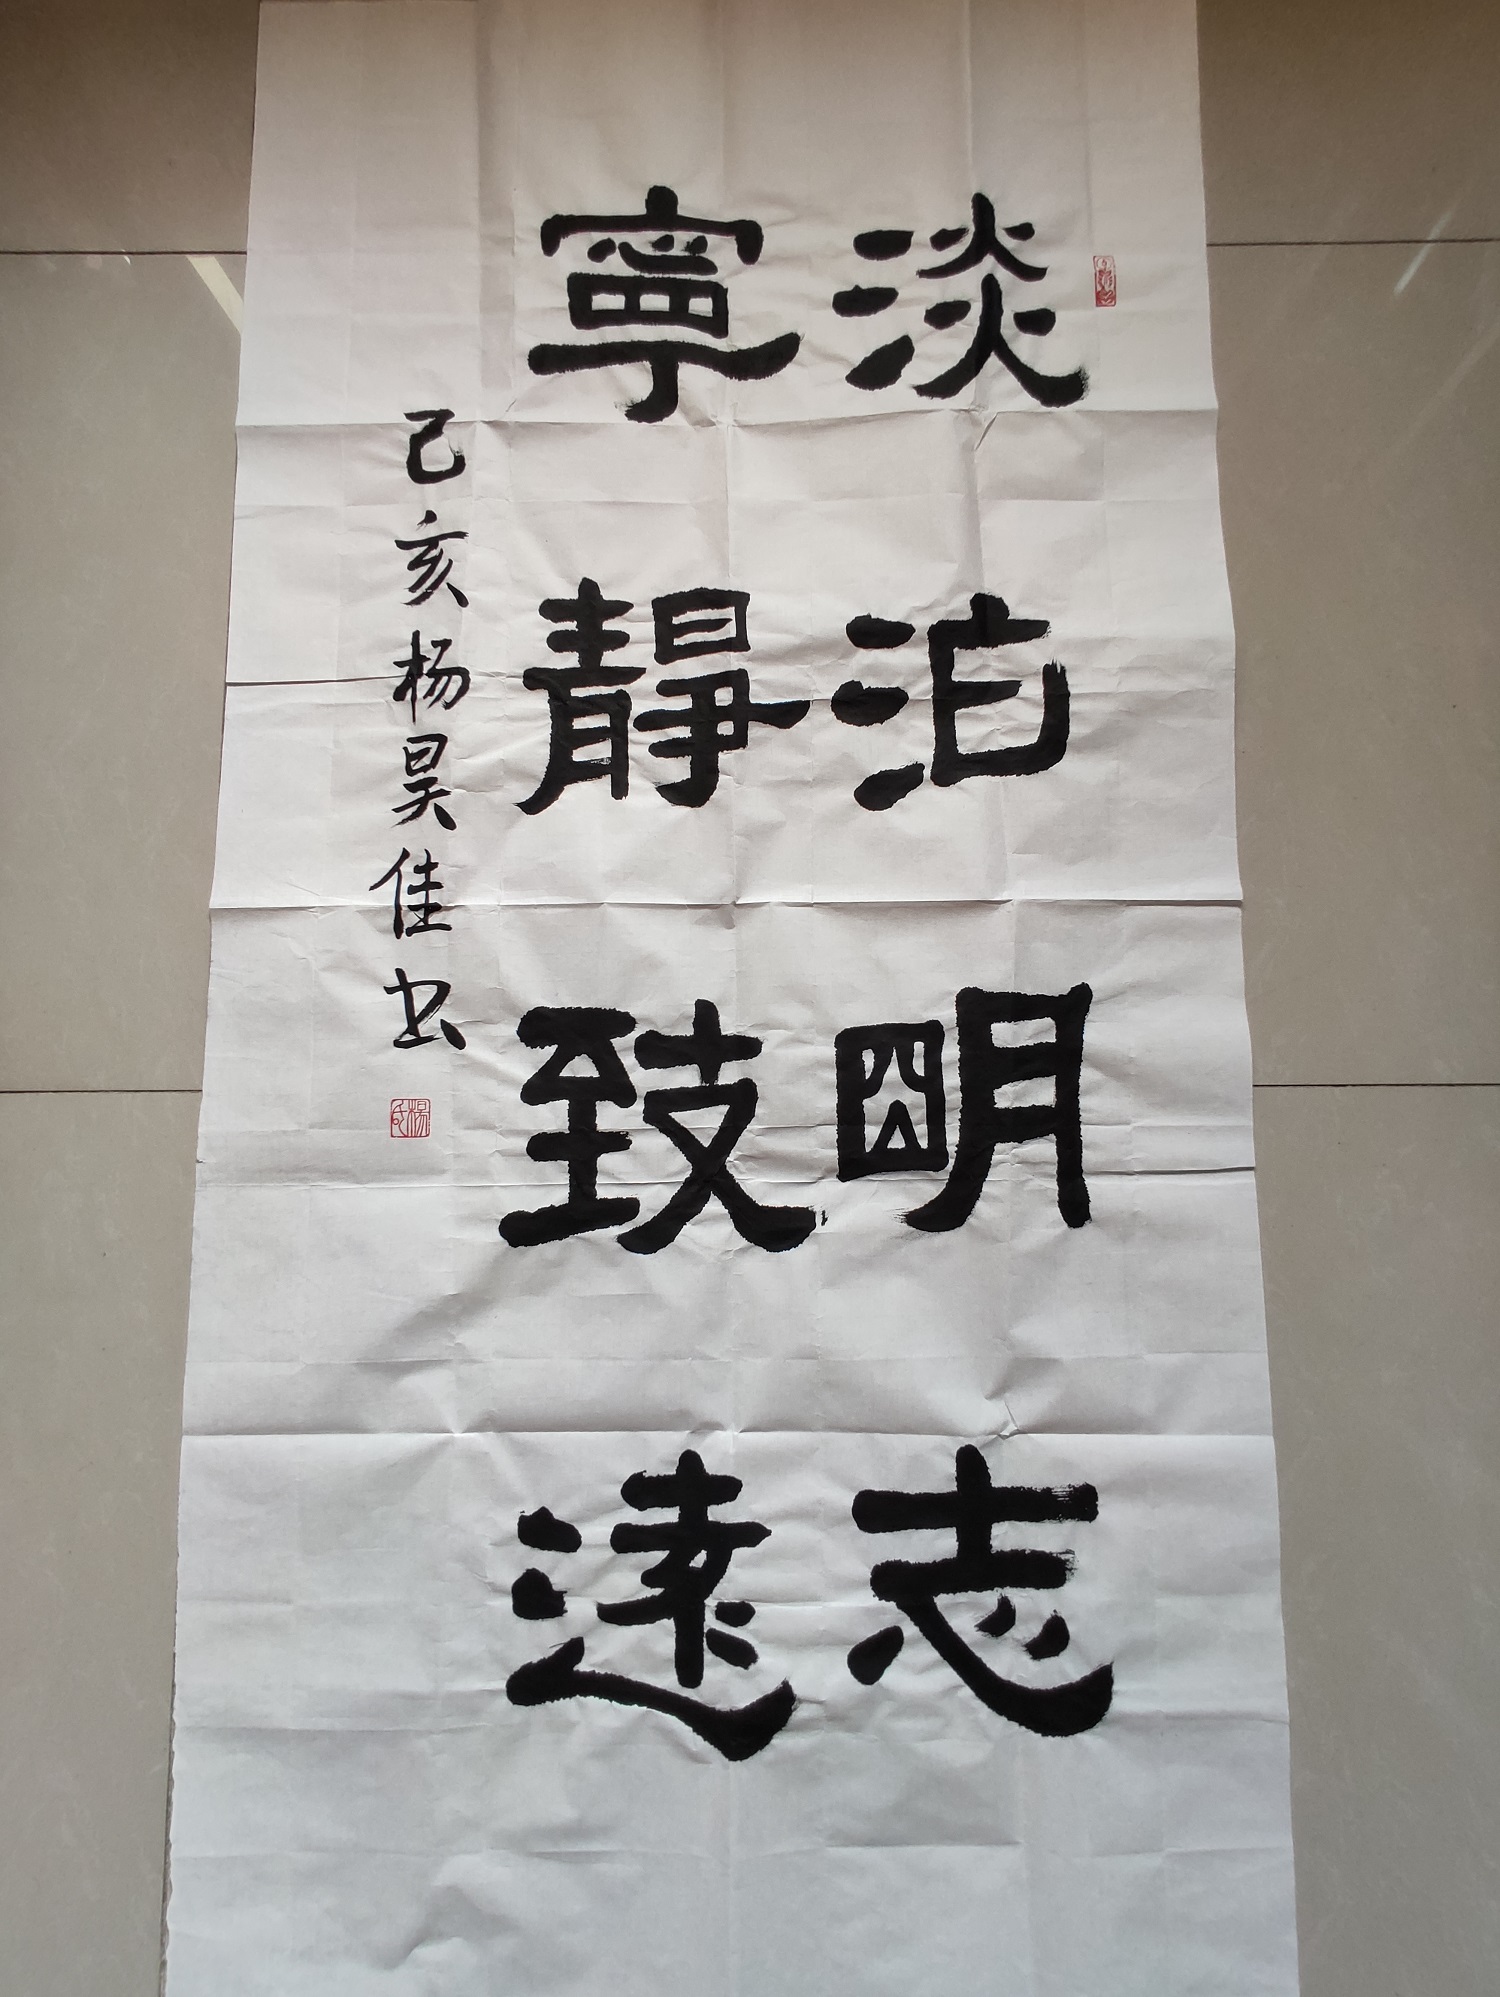 淡泊明志
寧靜致遠
己亥杨昊佳书
楊氏